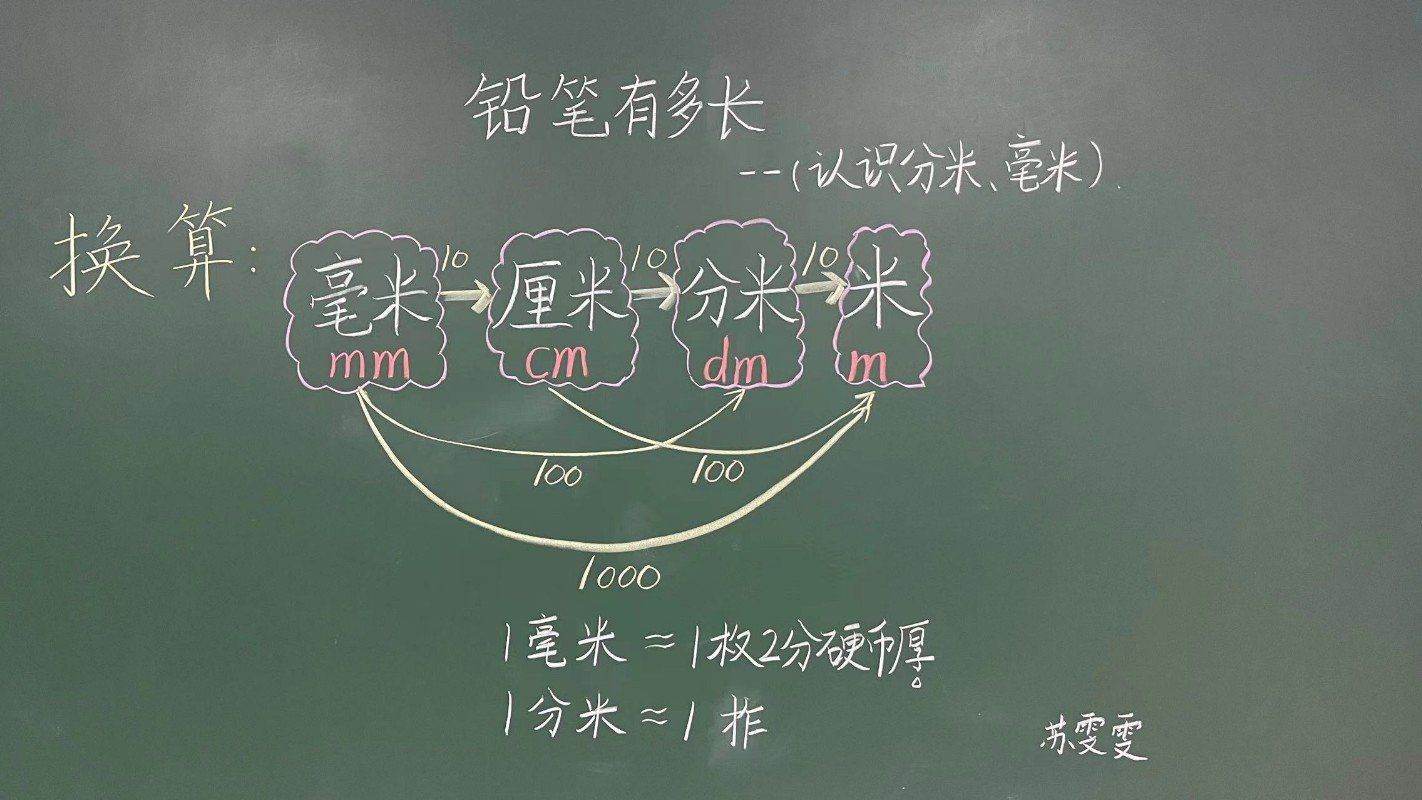 铅笔有多长
--(认识分米、毫米).
换算: 毫米 10 厘米 10 分米 10 米
mm cm dm m
100 100
1000
1毫米≈1枚2分硬币厚。
1分米≈1拃
苏雯雯